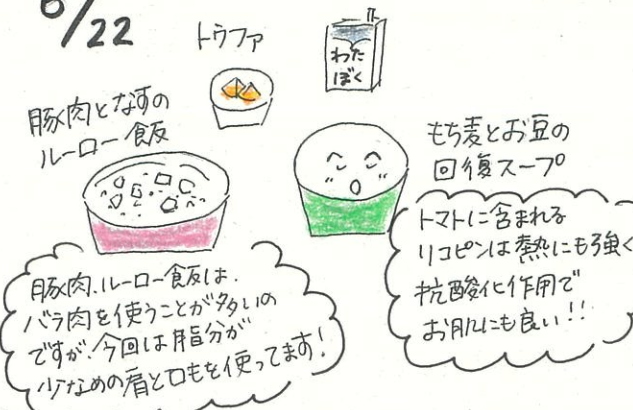 6/22
トウファ
わた
ぼく
豚肉となすの
ルーロー飯
もち麦とお豆の
回復スープ
豚肉、ルーロー飯は、
バラ肉を使うことが多いの
ですが、今回は脂分が
少なめの肩ともも を使ってます！
トマトに含まれる
リコピンは熱にも強く
抗酸化作用で
お肌にも良い！！